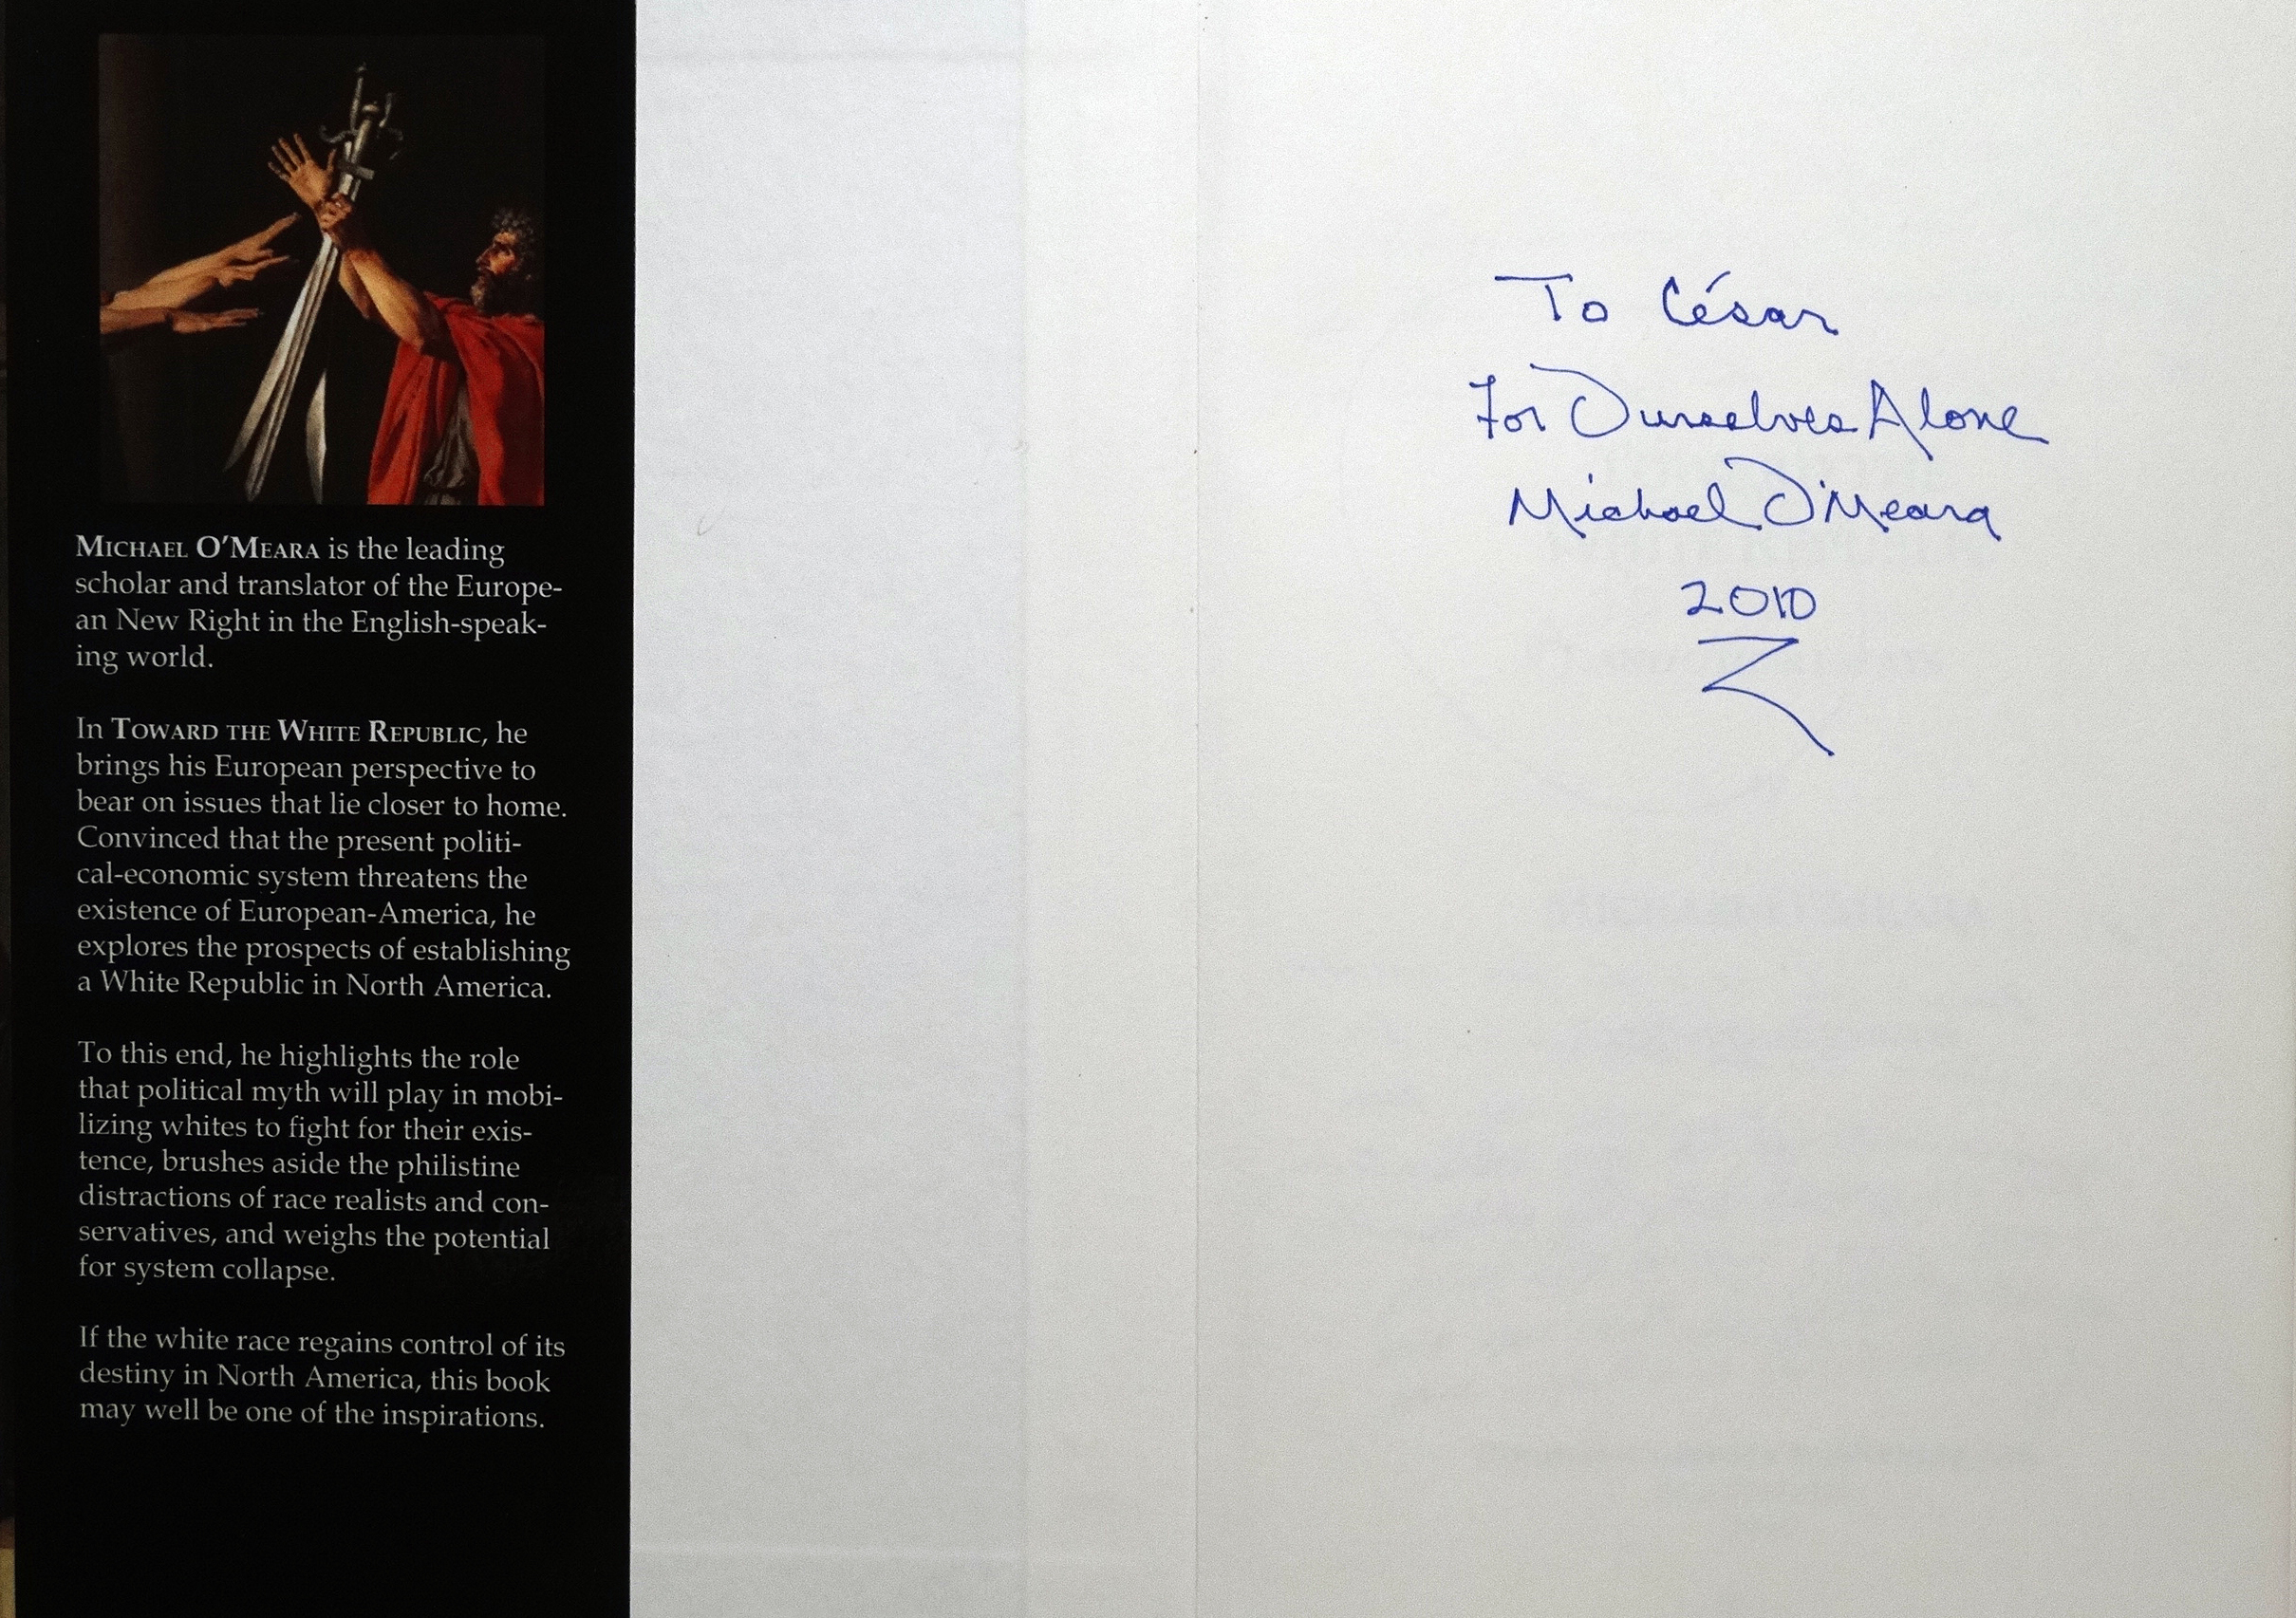 MICHAEL O'MEARA is the leading
scholar and translator of the Europe-
an New Right in the English-speak-
ing world.
In TOWARD THE WHITE REPUBLIC, he
brings his European perspective to
bear on issues that lie closer to home.
Convinced that the present politi-
cal-economic system threatens the
existence of European-America, he
explores the prospects of establishing
a White Republic in North America.
To this end, he highlights the role
that political myth will play in mobi-
lizing whites to fight for their exis-
tence, brushes aside the philistine
distractions of race realists and con-
servatives, and weighs the potential
for system collapse.
If the white race regains control of its
destiny in North America, this book
may well be one of the inspirations.
To César
For Ourselves Alone
Michael O'Meara
2010